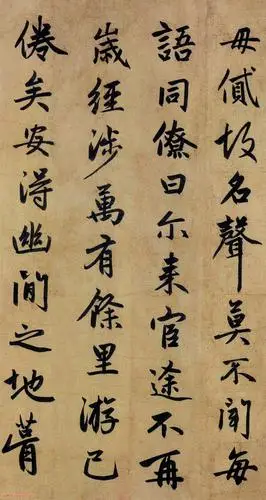 毋貳故名聲莫不聞每
語同僚曰尔来宦途不再
歲經涉萬有餘里游已
倦矣安得幽閒之地